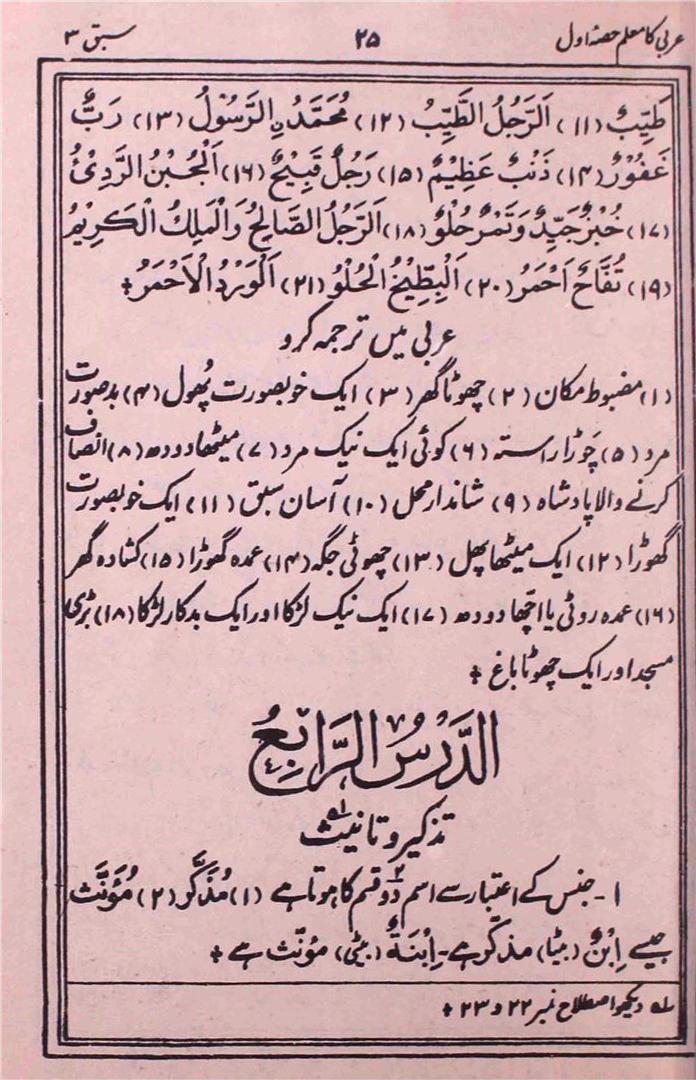 عربی کا معلم حصۂ اول ۲۵ سبق ۳
طَيِّبٌ (۱۱) اَلرَّجُلُ الطَّيِّبُ (۱۲) مُحَمَّدُ نِ الرَّسُوْلُ (۱۳) رَبٌّ
غَفُوْرٌ (۱۴) ذَنْبٌ عَظِيْمٌ (۱۵) رَجُلٌ قَبِيْحٌ (۱۶) اَلْجُبْنُ الرَّدِیْٔ
(۱۷) خُبْزٌ جَيِّدٌ وَتَمْرٌ حُلْوٌ (۱۸) اَلرَّجُلُ الصَّالِحُ وَالْمَلِكُ الْكَرِيْمُ
(۱۹) تُفَّاحٌ اَحْمَرُ (۲۰) اَلْبِطِّيْخُ الْحُلْوُ (۲۱) اَلْوَرْدُ الْاَحْمَرُ +
عربی میں ترجمہ کرو
(۱) مضبوط مکان (۲) چھوٹا گھر (۳) ایک خوبصورت پُھول (۴) بدصورت
مرد (۵) چَوڑا راستہ (۶) کوئی ایک نیک مرد (۷) میٹھا دودھ (۸) انصاف
کرنے والا پادشاہ (۹) شاندار محل (۱۰) آسان سبق (۱۱) ایک خوبصورت
گھوڑا (۱۲) ایک میٹھا پھل (۱۳) چھوٹی جگہ (۱۴) عمدہ گھوڑا (۱۵) کشادہ گھر
(۱۶) عمدہ روٹی یا اچھا دودھ (۱۷) ایک نیک لڑکا اور ایک بدکار لڑکا (۱۸) بڑی
مسجد اور ایک چھوٹا باغ +
الدَّرْسُ الرَّابِعُ
تذکیر و تانیث ؎۱
۱- جنس کے اعتبار سے اسم دو۲ قسم کا ہوتا ہے (۱) مُذَکَّر (۲) مُؤَنَّث
جیسے اِبْنٌ (بیٹا) مذکّر ہے۔ اِبْنَةٌ (بیٹی) مؤنّث ہے +
؎۱ دیکھو اصطلاح نمبر ۲۲ و ۲۳ +